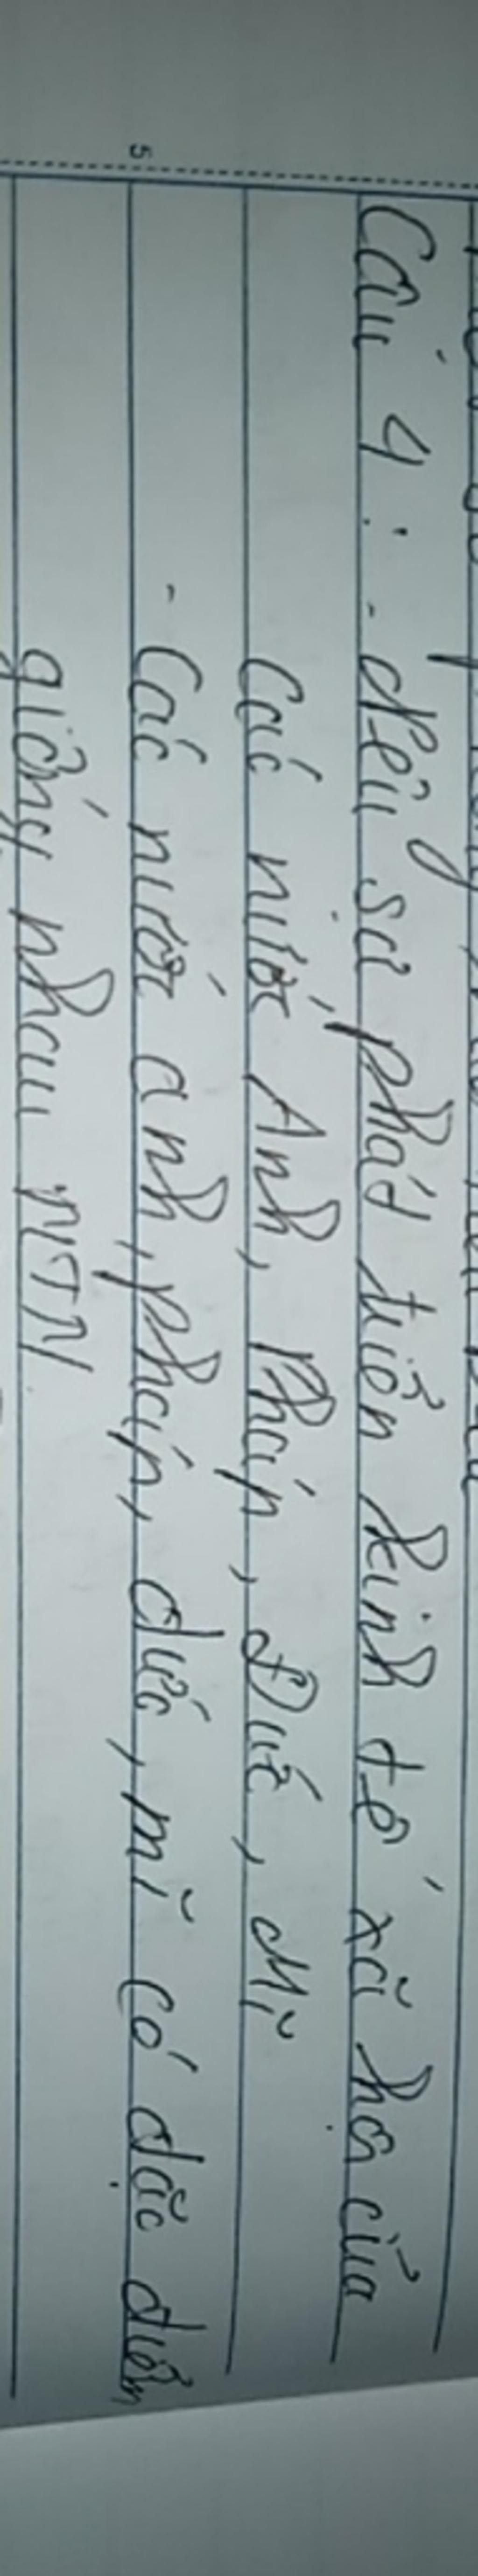 Câu 4: - Nêu sự phát triển kinh tế xã hộ của
Các nước Anh, Pháp, Đức, Mĩ
- Các nước anh, pháp, đức, mĩ có đặc điểm
giống nhau NTN
5